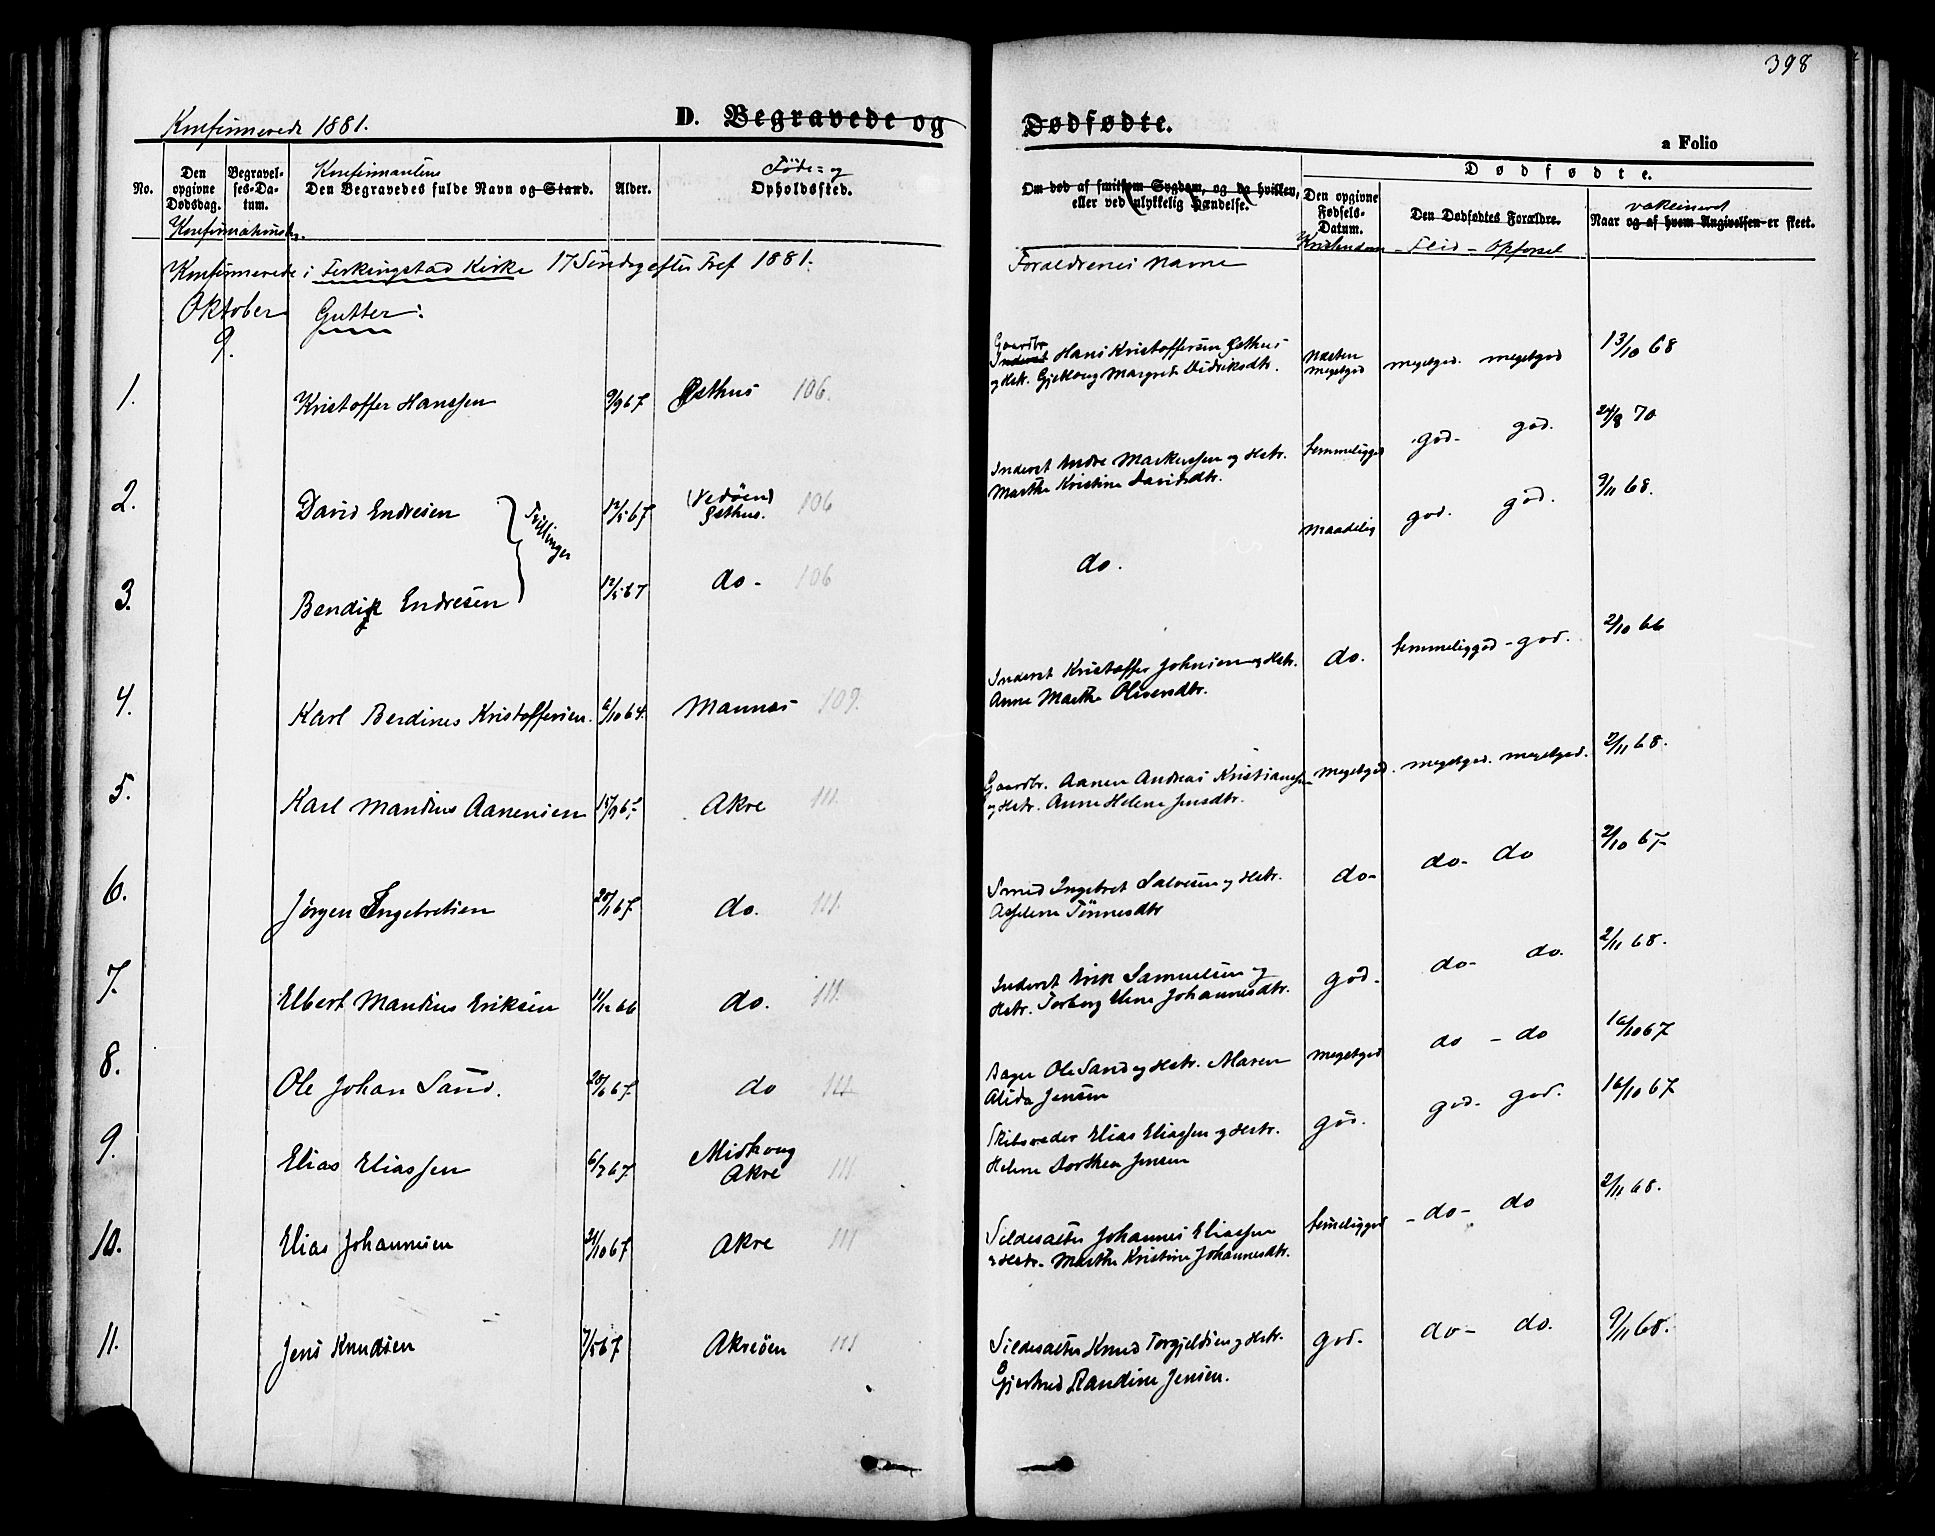 398
Konfirmerede 1881.
D. Begravede og Dødfødte.
a Folio
No.
Den opgivne Dødsdag.
Begravelses-Datum.
Konfirmationsdg.
Konfirmantens
Den Begravedes fulde Navn og Stand.
Alder.
Føde- og
Opholdssted.
Om død af smitsom Sygdom, og da hvilken,
eller ved ulykkelig Hændelse.
Dødfødte.
Den opgivne Fødsels-Datum.
Den Dødfødtes Forældre.
vakcineret
Naar og af hvem Angivelsen er skeet.
Kristendom - Flid - Opførsel
Konfirmerede i Ferkingstad Kirke 17 Søndag efter Tref 1881.
Forældrenes Navne
Oktober Gutter:
9.
1. Kristoffer Hanssen 9/9 67 Østhus 106.
Gaardbr Inderst Hans Kristoffersen Østhus
og Hstr. Gjetloug Margrete Didriksdtr.
Næsten megetgod megetgod. megetgod 13/10 68
2. David Endresen 12/5 67 (Vedøen) Østhus. 106
Tvillinger
Inderst Endre Markussen og Hstr.
Marthe Kristine Davidsdtr.
temmeliggod god. god. 24/8 70
3. Bendik Endresen 12/5 67 do. 106
do. maadelig god. god. 9/11 68.
4. Karl Berdines Kristoffersen. 6/10 64. Mannes 109.
Inderst Kristoffer Johnsen og Hstr.
Anne Marthe Olsensdtr.
do. temmeliggod - god. 2/10 66
5. Karl Mandius Aanensen Akre 111.
Gaardbr. Aanen Andreas Kristiansen
og Hstr. Anne Helene Jensdtr.
megetgod. megetgod. megetgod. 2/11 68.
6. Jørgen Ingebretsen 20/1 67. do. 111.
Smed Ingebret Salvesen og Hstr.
Asselene Tønnesdtr
do- do- do 2/10 67
7. Elbert Mandius Eriksen 11/12 66 do. 111.
Inderst Erik Samuelsen og
Hstr. Torborg Elene Johannesdtr.
god. do- do. 2/11 68.
8. Ole Johan Sand. 20/6 67. do 111
Bager Ole Sand og Hstr. Maren
Alida Jensen
megetgod do - do 16/10 67
9. Elias Eliassen 6/7 67. Midhoug Akre 111
Skibsreder Elias Eliassen og Hstr.
Helene Dorthea Jensen
god. god. god. 16/10 67
10. Elias Johannesen 21/10 67 Akre 111
Sildesalter Johannes Eliassen
og Hstr. Marthe Kristine Johannesdtr.
temeliggod - do - do 2/11 68.
11. Jens Knudsen 7/5 67 Akreøen 111
Sildesalter Knud Torgjeldsen og Hstr.
Gjertrud Randine Jensen.
god. do - do. 9/11 68.